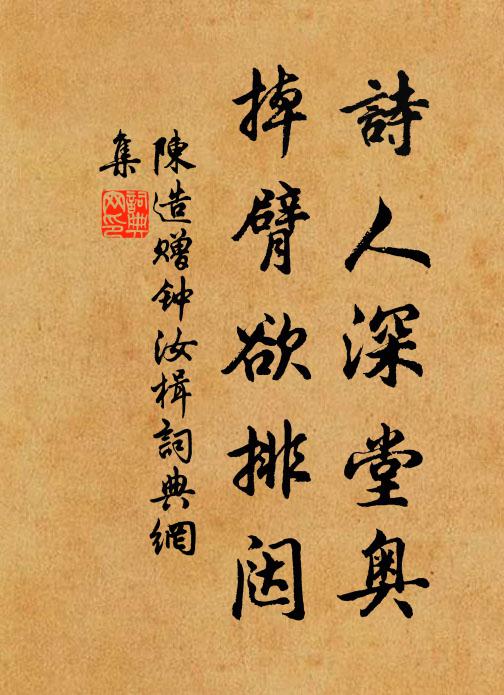 詩人深堂奥
掉臂欲排闼
陳造赠钟汝楫詞典網
集
詞典
网印